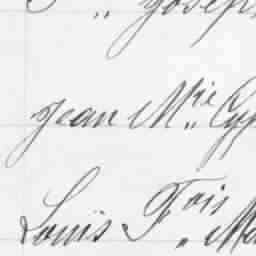 „ Joseph
Jean M.rie Cyp
Louis F.ois Me